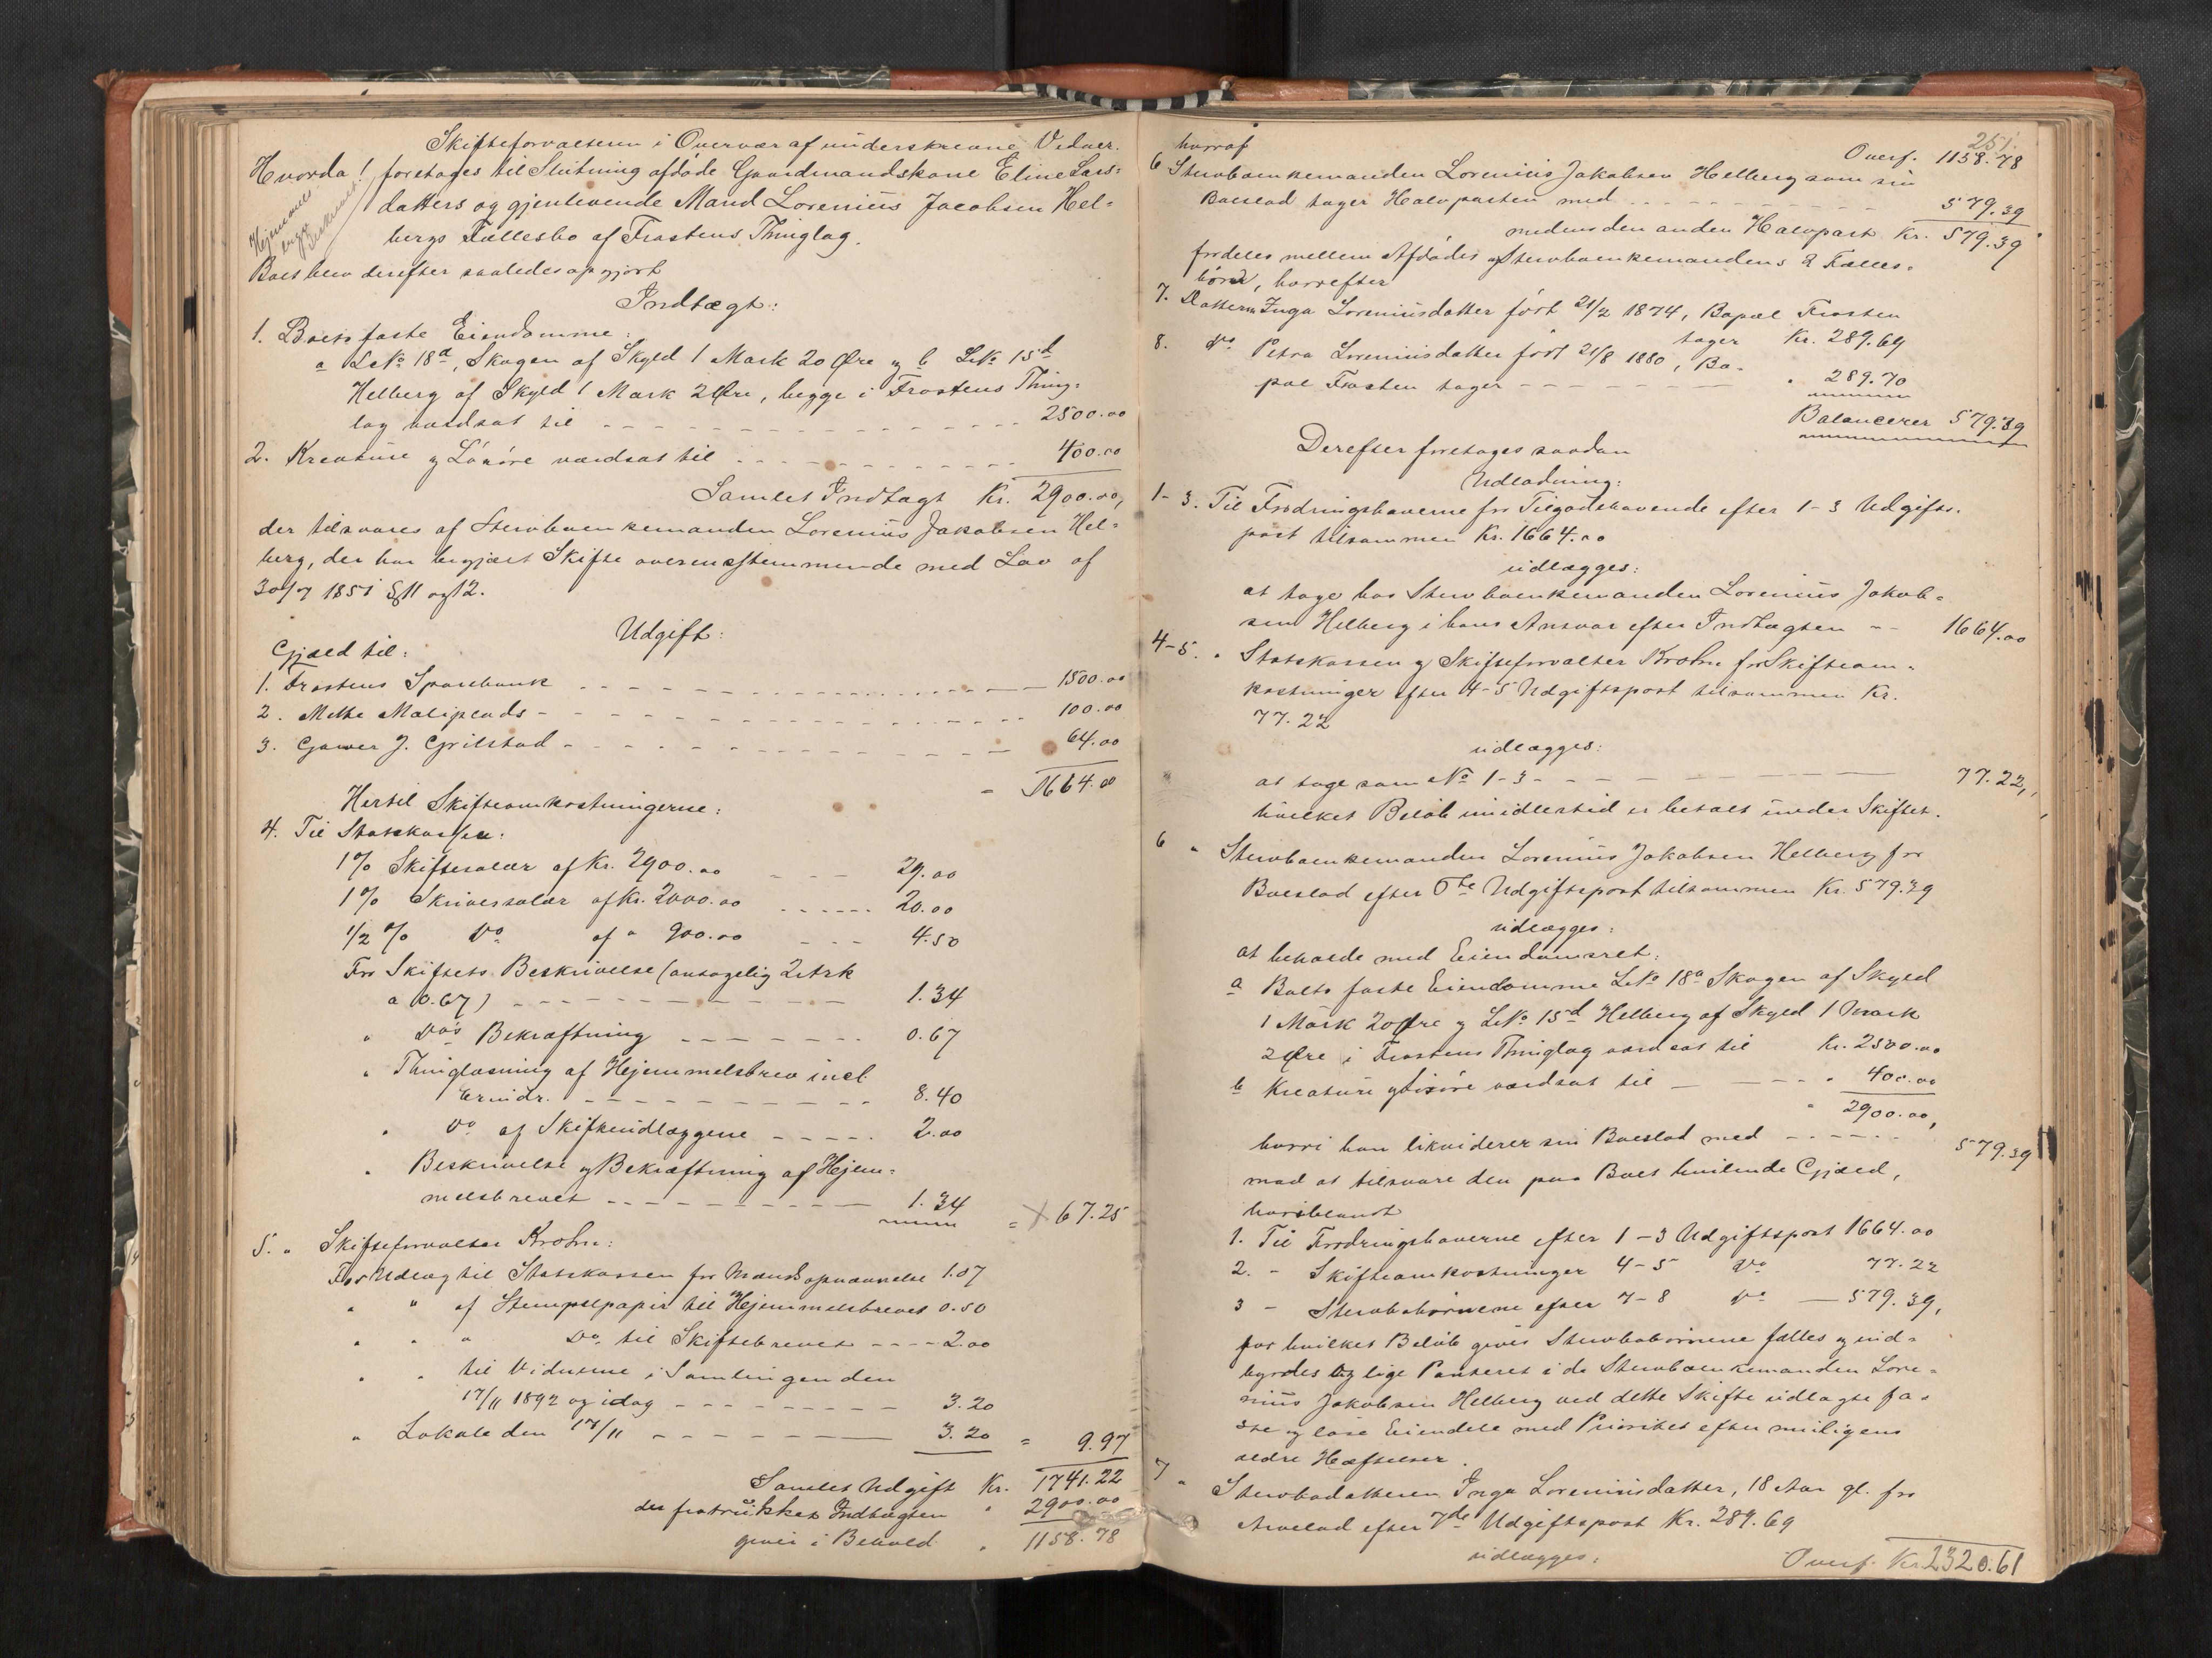 Skifteforvalteren i Overvær af underskrevne Vidner.
Hvorda! foretages til Slutning afdøde Gaardmandskone Eline Lars-
datters og gjenlevende Mand Lorenius Jacobsen Hel-
bergs Fællesbo af Frostens Thinglag.
Hjemmels
Beskrevet
Boet blev derefter saaledes opgjort
Indtægt:
1. Boets faste Eiendomme:
a LNo 18a, Skogen af Skyld 1 Mark 20 Øre og b LNo 15d
Helberg af Skyld 1 Mark 2 Øre, begge i Frostens Thing-
lag værdsat til 2500.00
2. Kreature og Løsøre værdsat til 400.00
Samlet Indtægt Kr. 2900.00,
der tilsvares af Stervboenkemanden Lorenius Jakobsen Hel-
berg, der har begjært Skifte overensstemmende med Lov af
30/7 1851 §§ 11 og 12.
Udgift:
Gjæld til:
1. Frostens Sparebank 1500.00
2. Methe Maliplads 100.00
3. J. Grilstad 64.00
= 1664.00
Hertil Skifteomkostningerne:
4. Til Statskassen:
1% Skiftesalær af Kr. 2900.00 29.00
1% Skriversalær af Kr. 2000.00 20.00
1/2 % Do af " 900.00 4.50
For Skiftets Beskrivelse (antagelig 2 Ark
a 0.67) 1.34
" Do's Bekræftning 0.67
" Thinglæsning af Hjemmelsbrev incl.
Erindr. 8.40
" Do af Skifteudlæggene 2.00
" Beskrivelse og Bekræftning af Hjem-
melsbrevet 1.34 = 67.25
5. " Skifteforvalter Krohn:
For Udlæg til Statskassen for Mændsopnævnelse 1.07
" " af Stempelpapir til Hjemmelsbrevet 0.50
" " " Do. til Skiftebrevet 2.00
" " til Vidnerne i Samlingen den
17/11 1892 og idag 3.20
" Lokale den 17/11 3.20 = 9.97
Samlet Udgift Kr. 1741.22
der fratrukket Indtægten " 2900.00
giver i Behold " 1158.78
251.
hvoraf Overf. 1158.78
6 Stervboenkemanden Lorenius Jakobsen Helberg som sin
Boeslod tager Halvparten med 579.39
medens den anden Halvpart Kr. 579.39
fordeles mellem Afdødes og Stervboenkemandens 2 Fælles-
børn, hvorefter
7. Datteren Inga Loreniusdatter født 21/2 1874, Bopæl Frosten
tager Kr. 289.69
8. Do Petra Loreniusdatter født 21/8 1880, Bo-
pæl Frosten tager " 289.70
Balancerer 579.39
Derefter foretages saadan
Udlodning:
1-3. Til Fordringshaverne for Tilgodehavende efter 1-3 Udgifts-
post tilsammen Kr. 1664.00
udlægges:
at tage hos Stervboenkemanden Lorenius Jakob-
sen Helberg i hans Ansvar efter Indtægten 1664.00
4-5. " Statskassen og Skifteforvalter Krohn for Skifteom-
kostninger efter 4-5 Udgiftspost tilsammen Kr.
77.22
udlægges:
at tage som No 1-3 77.22,
hvilket Beløb imidlertid er betalt under Skiftet.
6 " Stervboenkemanden Lorenius Jakobsen Helberg for
Boeslod efter 6te Udgiftspost tilsammen Kr. 579.39
udlægges:
at beholde med Eiendomsret:
a Boets faste Eiendomme LNo 18a Skogen af Skyld
1 Mark 20 Øre og LNo 15d Helberg af Skyld 1 Mark
2 Øre i Frostens Thinglag værdsat til Kr. 2500.00
b Kreature og Løsøre værdsat til " 400.00
" 2900.00,
hvori han likviderer sin Boeslod med 579.39
mod at tilsvare den paa Boet hvilende Gjæld,
hvoriblandt
1. Til Fordringshaverne efter 1-3 Udgiftspost 1664.00
2. - Skifteomkostninger 4-5 Do 77.22
3 - Stervbobørnene efter 7-8 Do 579.39,
for hvilket Beløb gives Stervbobørnene fælles og ind-
byrdes lige Panteret i de Stervboenkemanden Lore-
nius Jakobsen Helberg ved dette Skifte udlagte fa-
ste og løse Eiendele med Prioritet efter muligens
ældre Hæftelser.
7 " Stervbodatteren Inga Loreniusdatter, 18 Aar gl. for
Arvelod efter 7de Udgiftspost Kr. 289.69
udlægges:
Overf. Kr. 2320.61